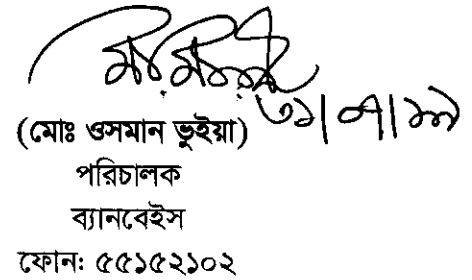 ৩১|০৭|১৯
(মোঃ ওসমান ভুইয়া)
পরিচালক
ব্যানবেইস
ফোন: ৫৫১৫২১০২